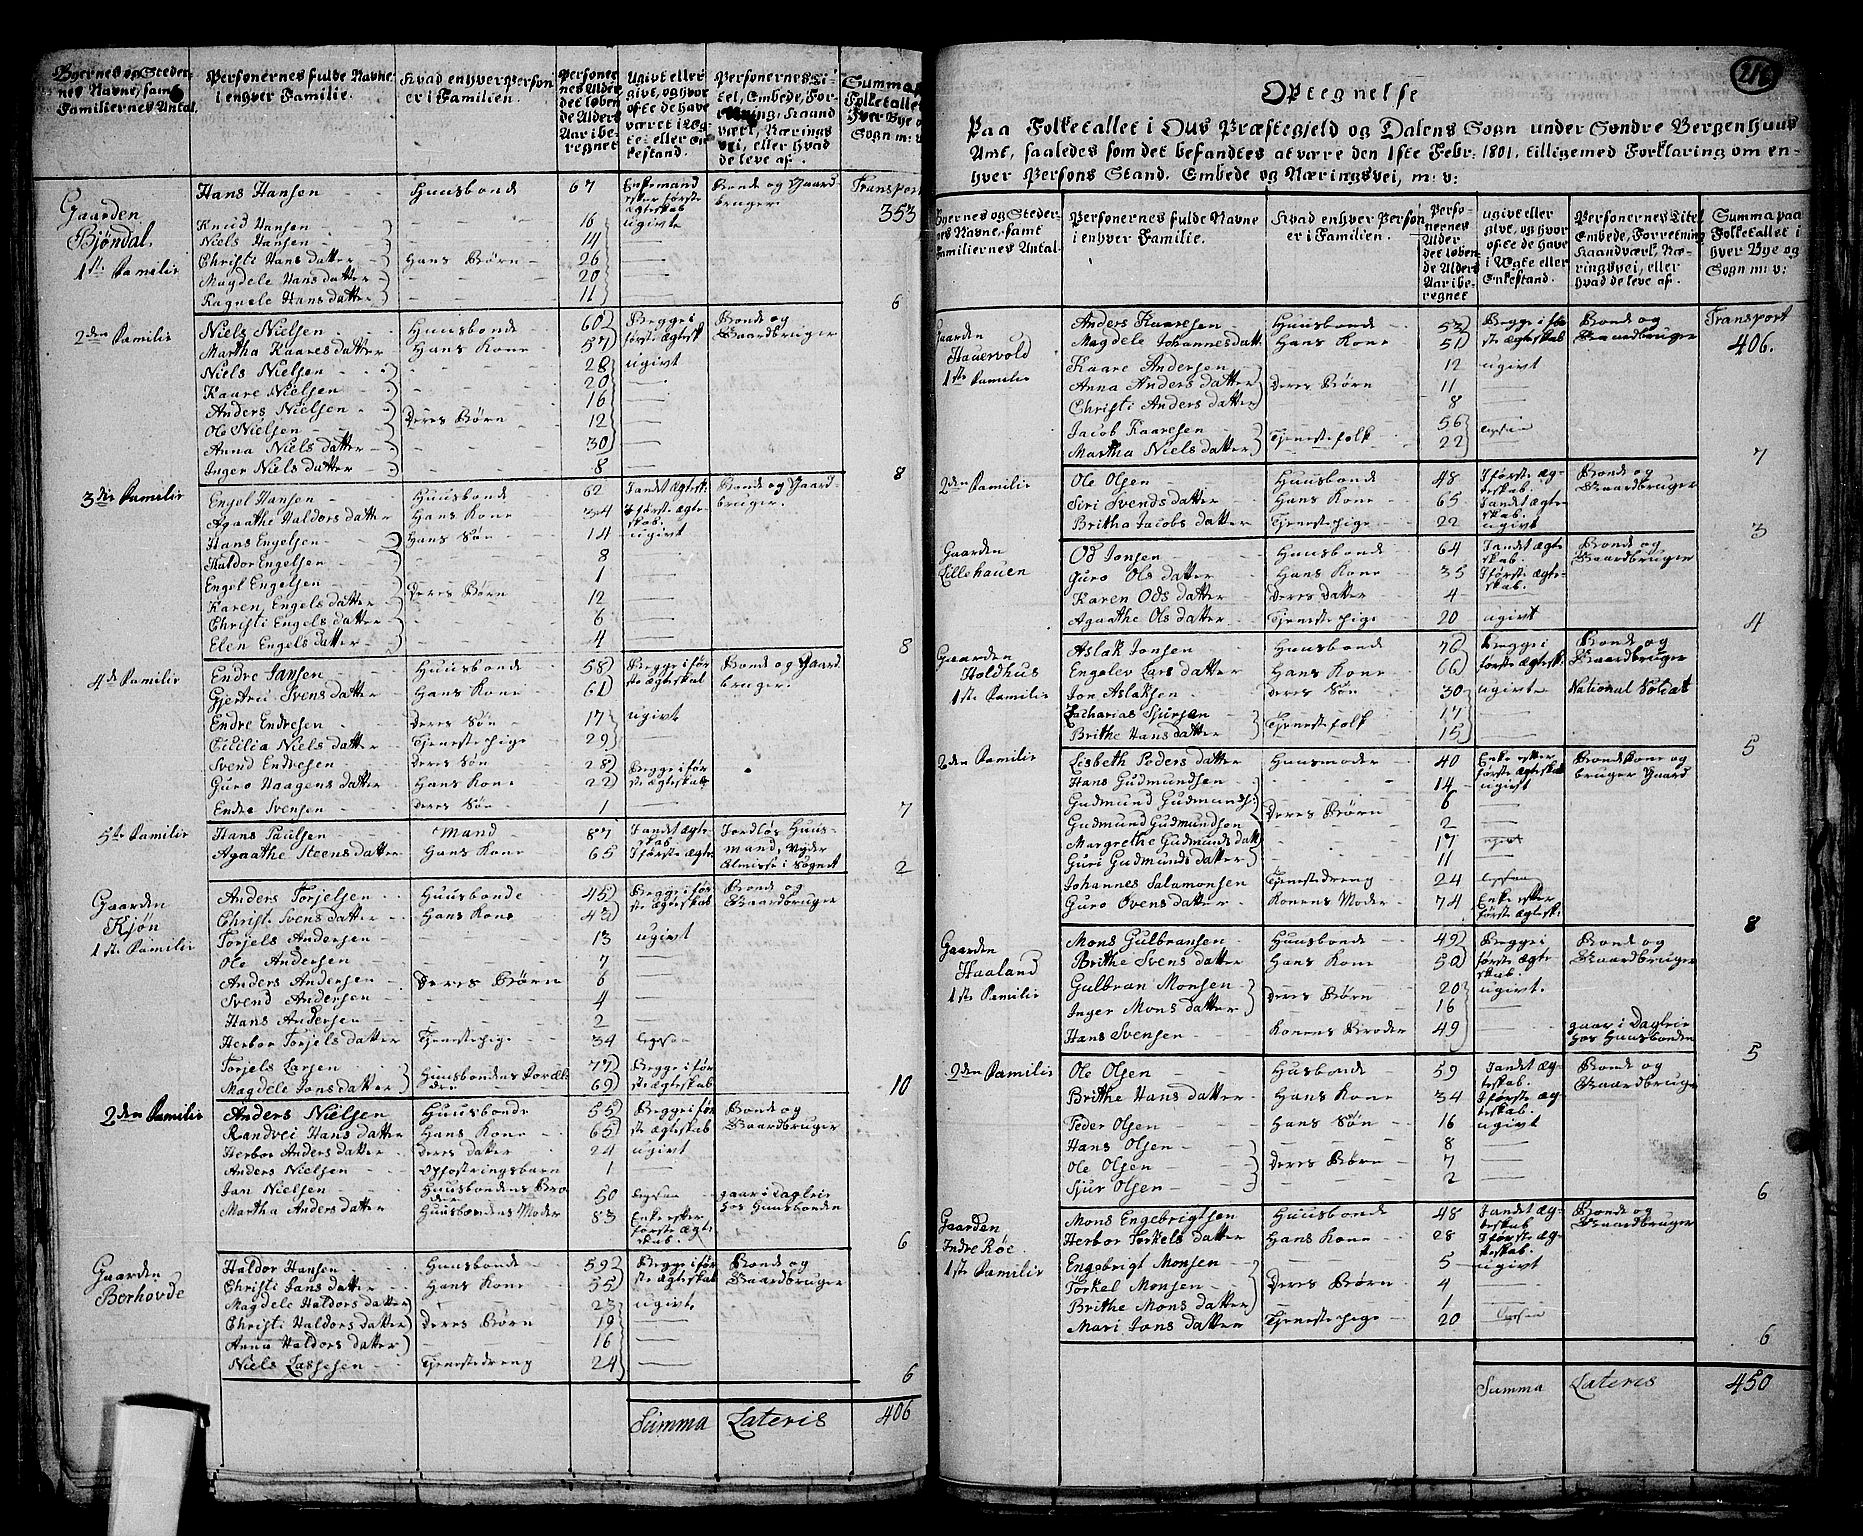 Byernes og Steder-
nes Navne, samt
Familiernes Antal.
Personernes fulde Navne
i enhver Familie.
Hvad enhver Person
er i Familien.
Personer-
nes Alder
det løben-
de Alders
Aar ibe-
regnet
Ugivt eller
givt, og hvor
ofte de have
været i Æg-
te- eller En-
kestand.
Personernes Ti-
tel, Embede, For-
retning, Haand-
værk, Nærings
vei, eller hvad
de leve af.
Summa
Folketallet
hver Bye o
Sogn m: v:
Gaarden
Bjöndal
1ste Familie
Hans Hansen Huusbonde 67 Enkemand efter første Ægteskab Bonde og Gaardbruger. Transport 353
Knud Hansen 16 ugivt
Niels Hansen 14 —
Christi Hans datter Hans Børn 26 —
Magdele Hans datter 20 —
Ragnele Hans datter 11 — 6
2den Familie
Niels Nielsen Huusbonde 60 Begge i første Ægteskab Bonde og Gaardbruger
Martha Kaares datter Hans Kone 57
Niels Nielsen 28 ugivt
Kaare Nielsen 20 —
Anders Nielsen 16 —
Ole Nielsen Deres Børn 12 —
Anna Niels datter 30 —
Inger Niels datter 8 — 8
3die Familie
Engel Hansen Huusbonde 62 I andet Ægtesk: Bonde og Gaardbruger.
Agaathe Haldors datter Hans Kone 34 I første Ægteskab.
Hans Engelsen Hans Søn 14 ugivt
Haldor Engelsen 8 —
Engel Engelsen 1 —
Karen Engels datter Deres Børn 12 —
Christi Engels datter 6 —
Elen Engels datter 4 — 8
4de Familie
Endre Jansen Huusbonde 58 Begge i første Ægteskab Bonde og Gaardbruger.
Gjertru Svens datter Hans Kone 61
Endre Endresen Deres Søn 17 ugivt
Cicilia Niels datter Tjenestepige 29 —
Svend Endresen Deres Søn 28 Begge i første Ægteskab
Guro Haagens datter Hans Kone 22
Endre Svensen Deres Søn 1 — 7
5te Familie
Hans Paulsen Mand 87 I andet Ægteskab Jordløs Huusmand, Nyder
Agaathe Steens datter Hans Kone 65 I første Ægtes: Almisse i Sognet 2
Gaarden
Kjøn
1ste Familie
Anders Torjelsen Huusbonde 45 Begge i første Ægteskab Bonde og Gaardbruger
Christi Svens datter Hans Kone 43
Torjels Andersen 13 ugivt
Ole Andersen 7 —
Anders Andersen Deres Børn 6 —
Svend Andersen 4 —
Hans Andersen 2 —
Herbor Torjels datter Tjenestepige 34 ligesaa
Torjels Larsen Huusbondens Forældre 77 Begge i første Ægteskab
Magdele Jons datter 69 10
2den Familie
Anders Nielsen Huusbonde 55 Begge i første Ægteskab Bonde og Gaardbruger
Randvei Hans datter Hans Kone 65
Herbor Anders datter Deres datter 24 ugivt
Anders Nielsen Opfostringsbarn 1 —
Jan Nielsen Huusbondens Broder 50 ligesaa gaar i Dagleie hos Huusbonden
Martha Anders datter Huusbondens Moder 83 Enke efter første Ægteskab. 6
Gaarden
Berhovde
Haldor Hansen Huusbonde 59 Begge i første Ægteskab Bonde og Gaardbruger
Christi Jans datter Hans Kone 55
Magdele Haldors datter 23 ugivt
Christi Haldors datter Deres Børn 19 —
Anna Haldors datter 16 —
Niels Lassesen Tjenestedreng 24 — 6
Summa Lateris 406
216
Optegnelse
Paa Folketallet i Ous Præstegjeld og Dalens Sogn under Søndre Bergenhuus
Amt, saaledes som det befandtes at være den 1ste Febr: 1801, tilligemed Forklaring om en-
hver Persons Stand, Embede og Næringsvei, m: v:
Byernes og Steder-
nes Navne, samt
Familiernes Antal
Personernes fulde Navne
i enhver Familie.
Hvad enhver Person
er i Familien.
Perso-
nernes
Alder
det løben-
de Alders
Aar ibe-
regnet
ugivt eller
givt, og hvor
ofte de have
været
i Ægte eller
Enkestand.
Personernes Titel
Embede, Forretning
Haandværk, Næ-
ringsvei, eller
hvad de leve af.
Summa paa
Folketallet i
hver Bye og
Sogn m: v:
Gaarden
Hauervold
1ste Familie
Anders Kaaresen Huusbonde 53 Begge i første Ægteskab Bonde og Gaardbruger Transport 406.
Magdele Johannes datt Hans Kone 51
Kaare Andersen 12 ugivt
Anna Anders datter Deres Børn 11 —
Christi Anders datter 8 —
Jacob Kaaresen Tjenestefolk 56 ligesaa
Martha Niels datter 22 7
2den Familie
Ole Olsen Huusbonde 48 I første Ægteskab. Bonde og Gaardbruger
Siri Svends datter Hans Kone 65 I andet Ægteskab.
Britha Jacobs datter Tjenestepige 22 ugivt 3
Gaarden
Lillehauen
Od Jonsen Huusbonde 64 I andet Ægteskab. Bonde og Gaardbruger
Guro Ols datter Hans Kone 35 I første Ægteskab.
Karen Ods datter Deres datter 4
Agaathe Ols datter Tjenestepige 20 ugivt 4
Gaarden
Holdhus
1ste Familie
Aslak Jonsen Huusbonde 76 Begge i første Ægtesk: Bonde og Gaardbruger
Engelev Lars datter Hans Kone 66
Jon Aslaksen Deres Søn 30 ugivte National Soldat
Zacharias Sjursen Tjenestefolk 17 —
Brithe Hans datter 15 — 5
2den Familie
Lisbeth Peders datter Huusmoder 40 Enke efter første Ægteskab Bondekone og bruger Gaard
Hans Gudmundsen 14 ugivt
Gudmund Gudmunds: Deres Børn 6 —
Gudmund Gudmundsen 2 —
Margrethe Gudmunds datt 17
Guri Gudmunds datter 11 —
Johannes Salamonsen Tjenestedreng 24 ligesaa
Guro Ovens datter Konens Moder 74 Enke efter første Ægtesk: 8
Gaarden
Haaland
1ste Familie
Mons Gulbransen Huusbonde 49 Begge i første Ægteskab. Bonde og Gaardbruger
Brithe Svens datter Hans Kone 50
Gulbran Monsen Deres Børn 20 ugivt.
Inger Mons datter 16 —
Hans Svensen Konens Broder 49 — gaar i Dagleie hos Huusbonden 5
2den Familie
Ole Olsen Husbonde 59 I andet Ægteskab. Bonde og Gaardbruger
Brithe Hans datter Hans Kone 34 I første Ægteskab
Peder Olsen Hans Søn 16 ugivt
Hans Olsen 8 —
Ole Olsen Deres Børn 7 —
Sjur Olsen 2 — 6
Gaarden
Indre Røe
1ste Familie
Mons Engebrigtsen Huusbonde 48 I andet Ægteskab Bonde og Gaardbruger
Herbor Torkels datter Hans Kone 28 I første Ægteskab.
Engebrigt Monsen 5 ugivt
Torkel Monsen Deres Børn 4 —
Brithe Mons datter 1 —
Mari Jons datter Tjenestepige 20 ligesaa 6
Summa Lateris 450